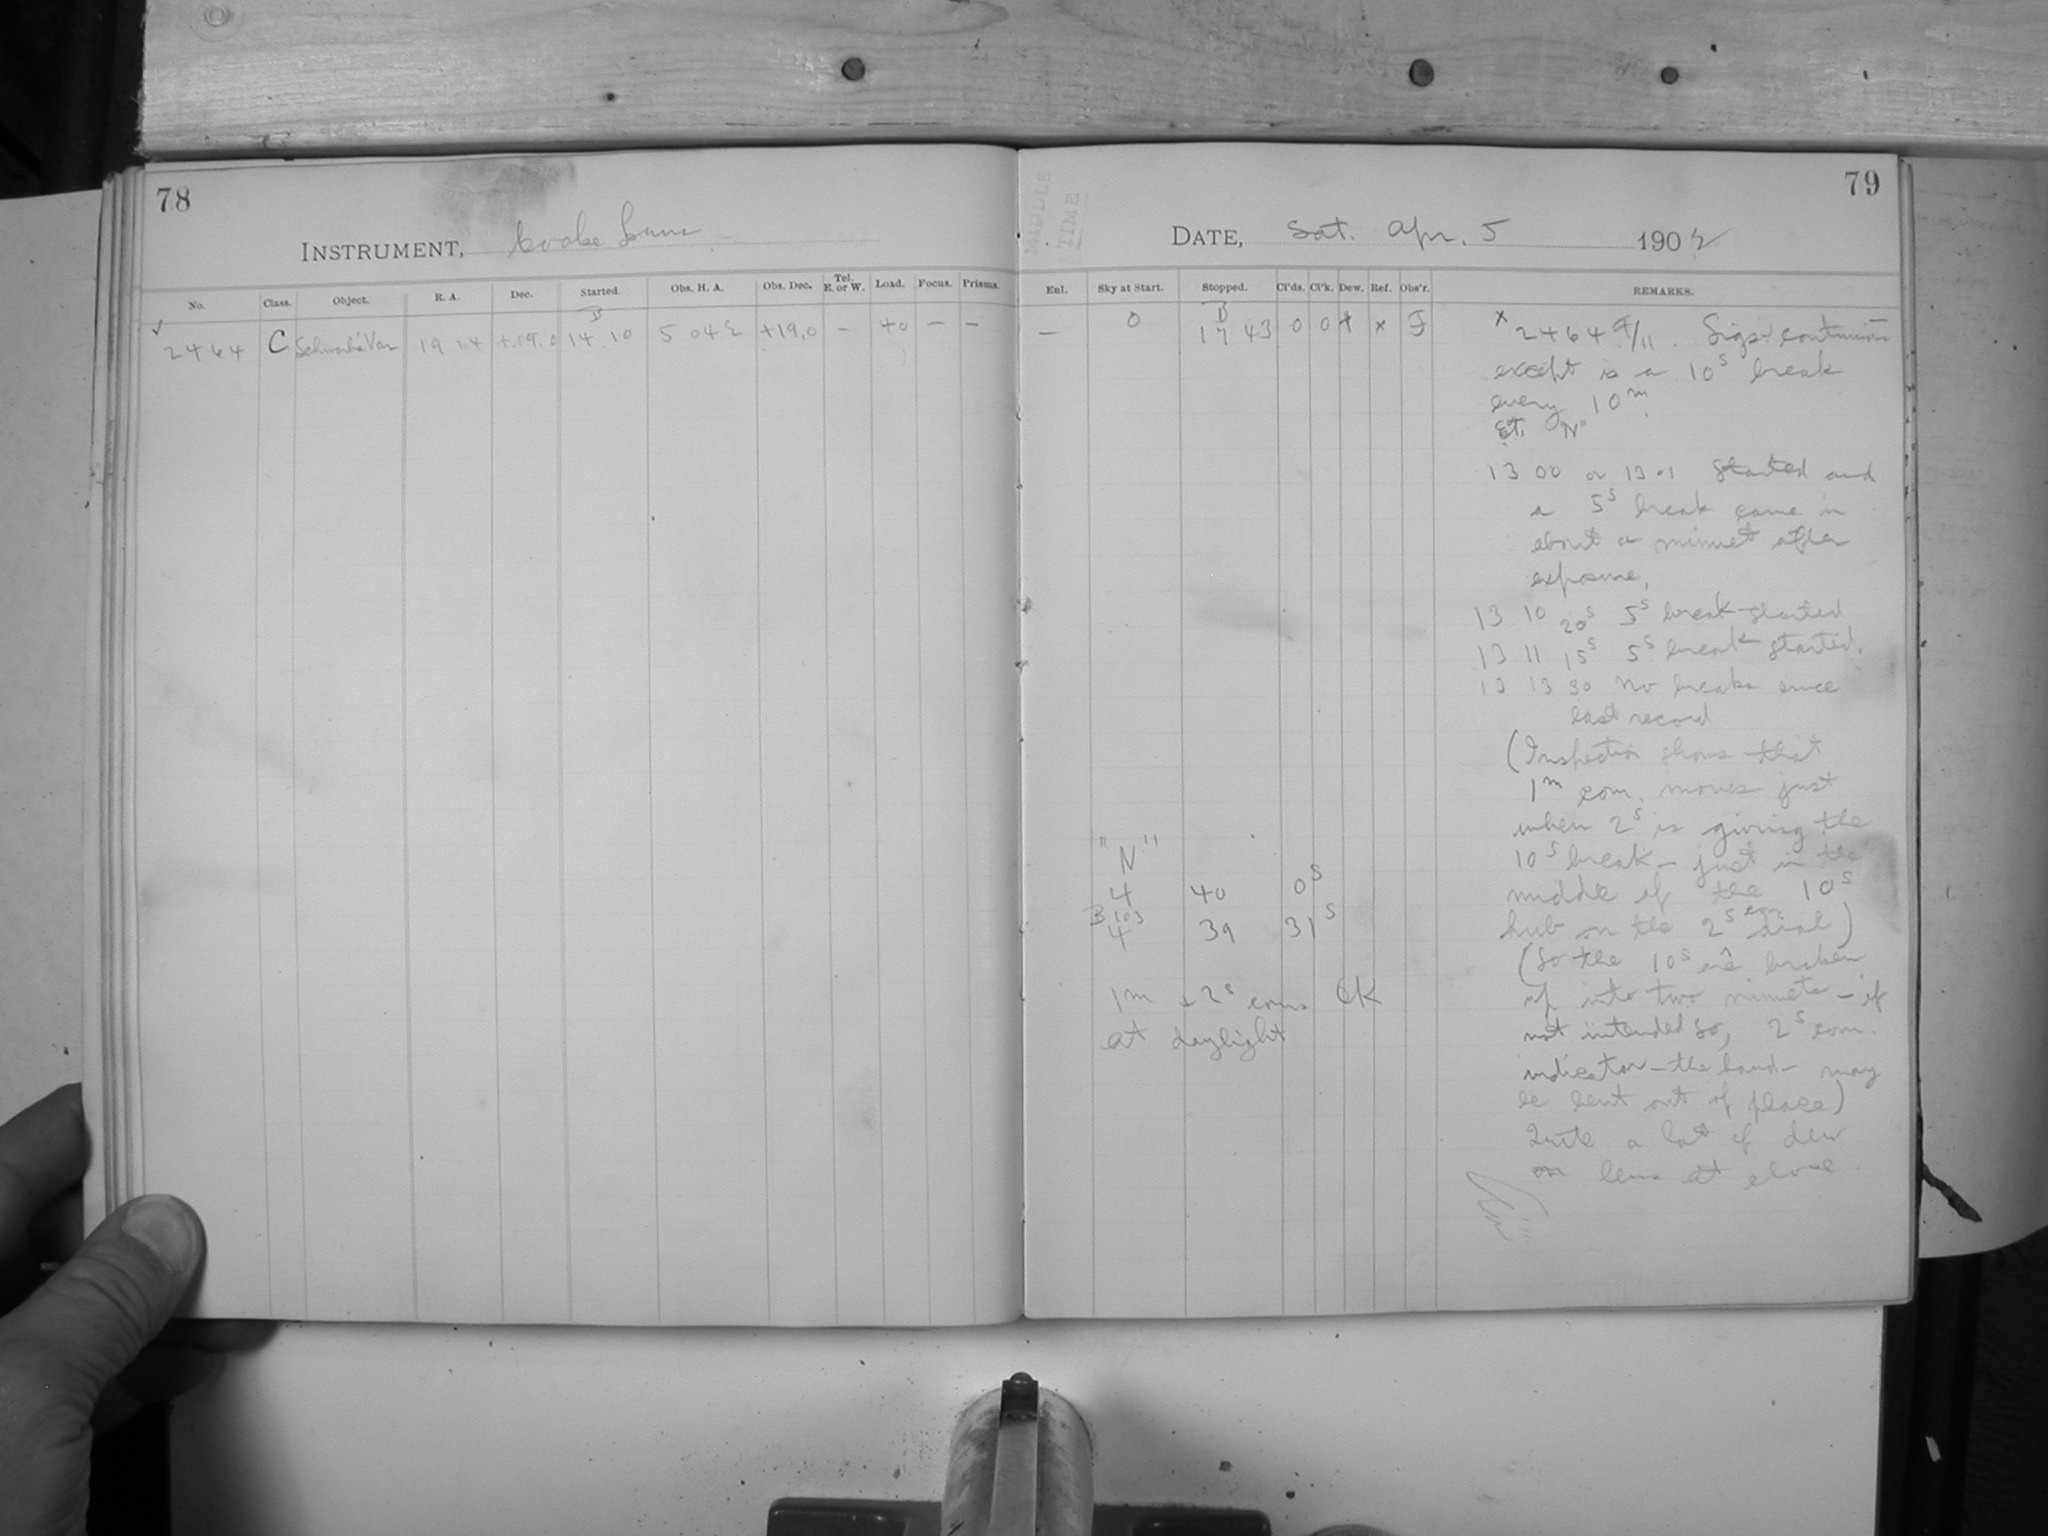 78
INSTRUMENT, Cooke Lens
No. Class. Object. R. A. Dec. Started. Obs. H. A. Obs. Dec. Tel. E. or W. Load. Focus. Prisms.
B
2464 C 19 24 +19.0 14 10 5 04 E +19.0 – 40 – –
79
MIDDLE
TIME
DATE, Sat. Apr. 5 1902
Enl. Sky at Start. Stopped. Cl'ds. Cl'k. Dew. Ref. Obs'r. REMARKS.
B
— 0 17 43 0 0 x F
x 2464 F/11. Sigs. continuous
except is a 10s break
every 10m
St. "N"
13 00 or 13 01 started and
a 5s break came in
about a minuet after
exposure,
13 10 20s 5s break started
13 11 15s 5s break started.
13 13 30 No breaks since
last record
(Inspection shows that
1m com. moves just
when 2s is giving the
10s break – just in the
middle of the 10s
hub on the 2s com dial)
(So the 10s are broken
up into two minuets – if
not intended so, 2s com.
indicator – the hand – may
be bent out of place)
Quite a lot of dew
on lens at close
"N"
4 40 0s
B 103
4 39 31s
1m + 2s coms OK
at daylight